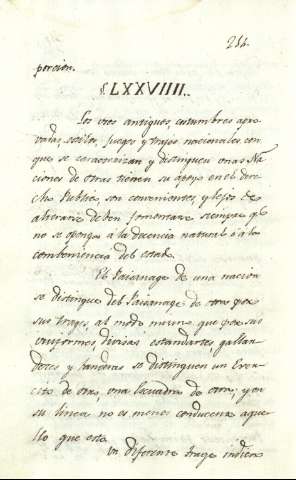 214.
porcion.
§LXXVIIII.
Los usos antiguos, costumbres apro
vadas, estilos, juegos y trajes nacionales con
que se caracterizan y distinguen unas Na
ciones de otras tienen su apoyo en el dere
cho Publico, son convenientes, y lejos de
alterarse deben fomentarse siempre qe
no se oponga á la decencia natural ó a la
combeniencia del estado.
El Paisanage de una nacion
se distingue del Paisanage de otra por
sus trages, al modo mismo que por sus
Uniformes, divisas estandartes gallar
detes y banderas se distinguen un Exer
cito de otro, una escuadra de otra; y en
su linea no es menos conducente aque
llo que esto.
Un diferente trage indica